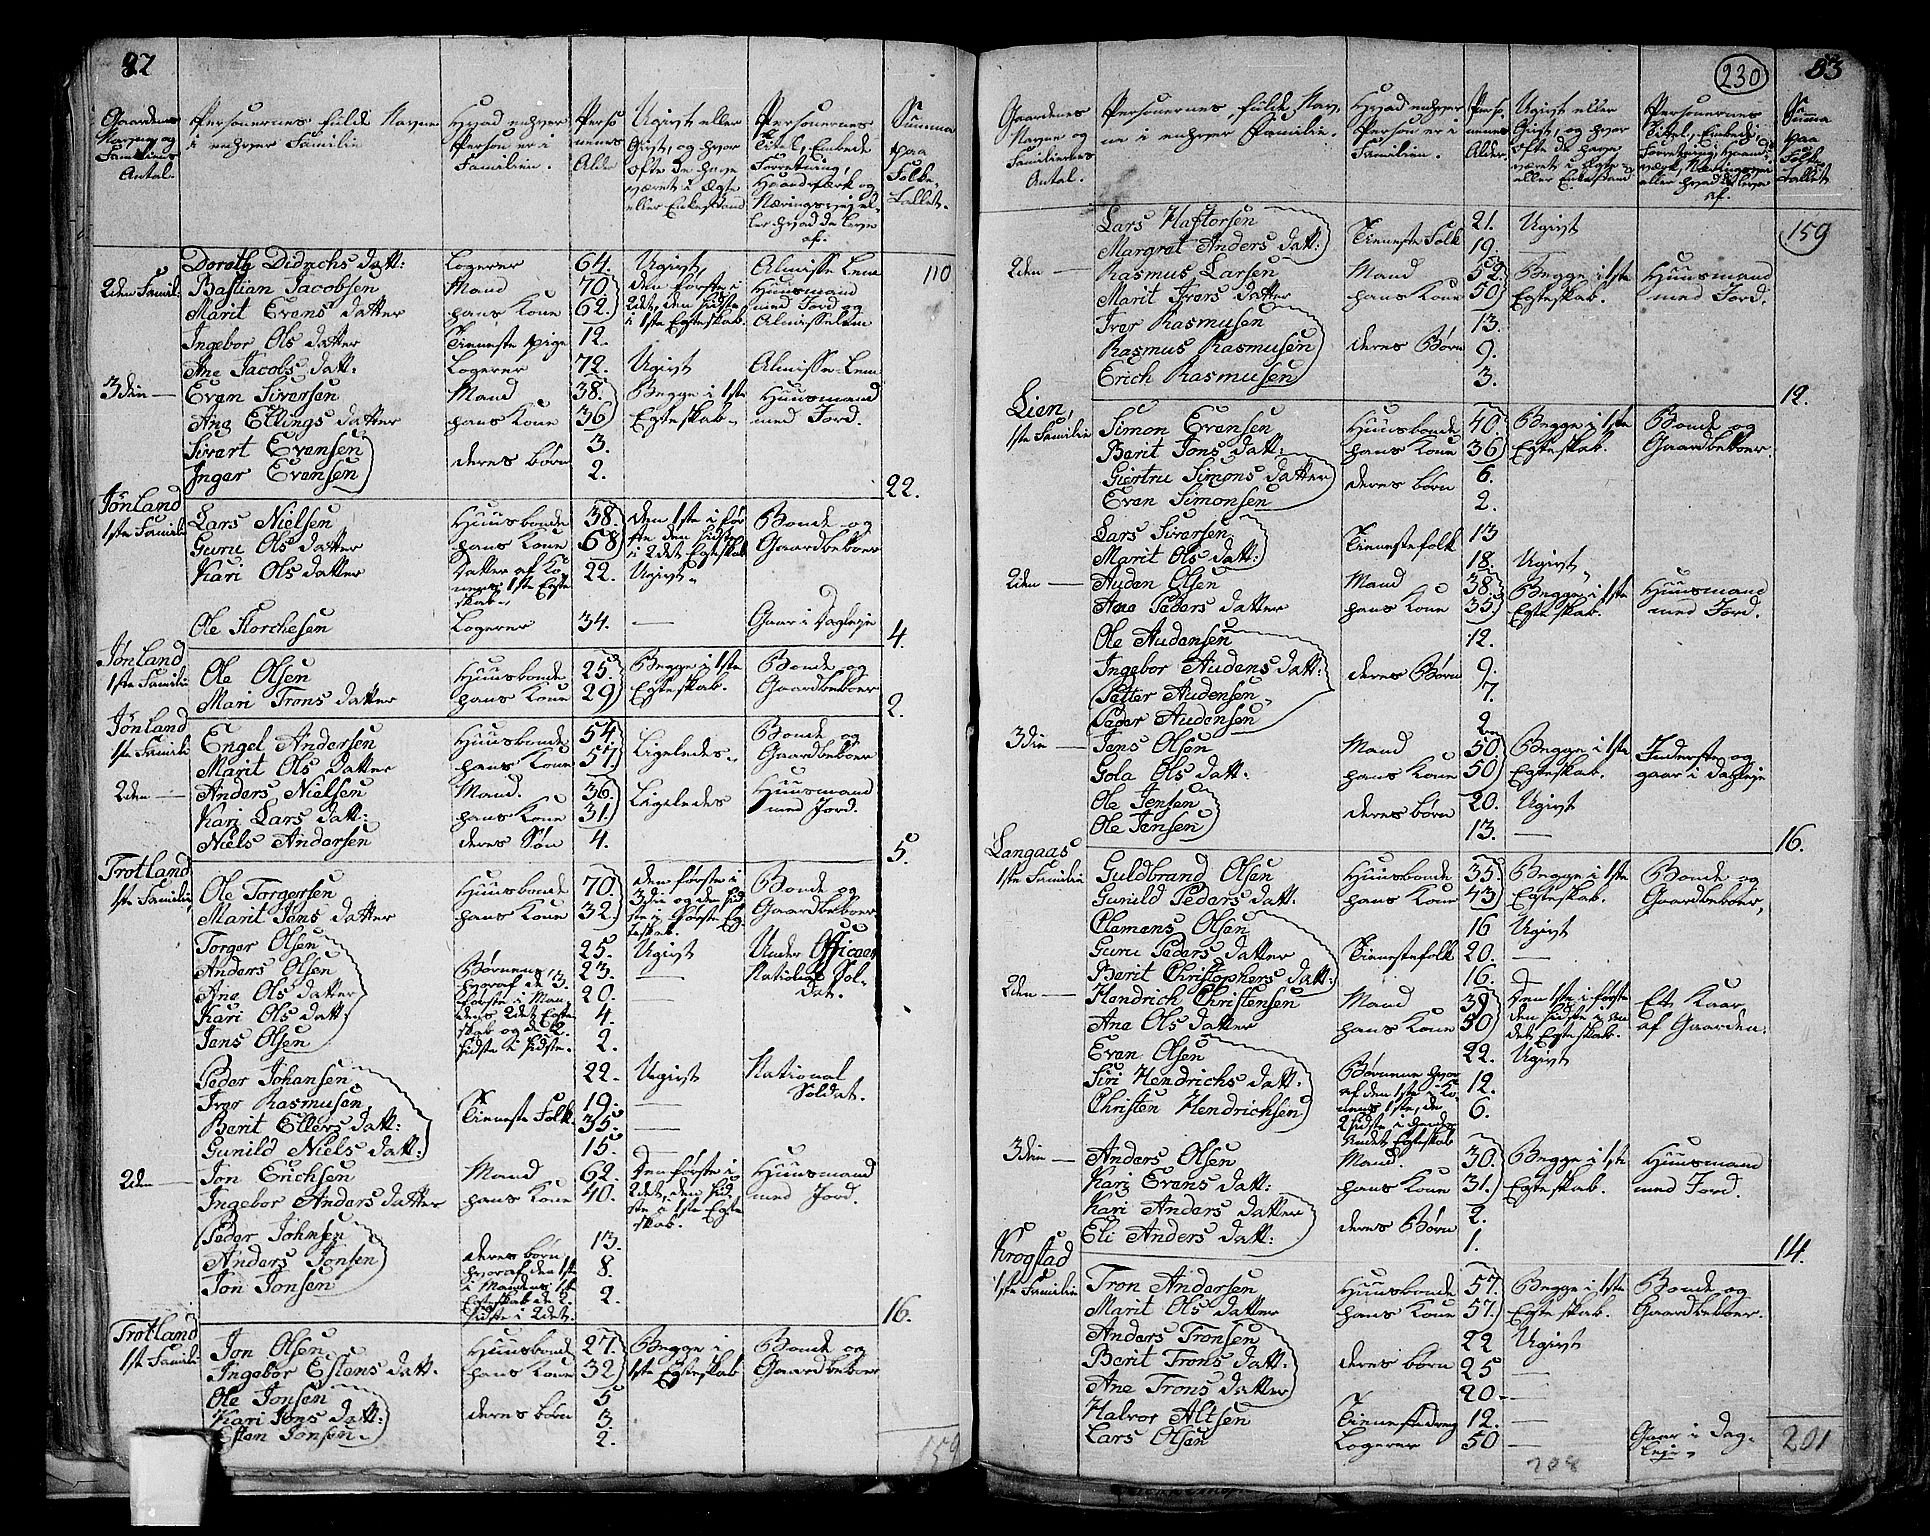 82
Gaardens Navn og Familiens Antal. | Personernes fulde Navne i enhver Familie | Hvad enhver Person er i Familien. | Personenes Alder | Ugivt eller Givt, og hvor ofte de have været i Ægte eller Enkestand | Personernes Titel, Embede Forretning, Haandværk og Næringsvej eller hvad de leve af. | Summa paa Folketallet.
Doroth Didrichs datt: | Logerer | 64. | Ugivt, | Almisse Lem | 110
2den Famil: | Bastian Jacobsen | Mand | 70. | den første i | Huusmand
Marit Evens datter | hans Kone | 62. | 2det, den sidste i 1ste Egteskab. | med Jord og Almisselem
Ingebor Ols datter | Tieneste pige | 12.
Ane Jacobs datt: | Logerer | 72. | Ugivt | Almisse-Lem
3die | Even Siversen | Mand | 38. | Begge i 1ste | Huusmand
Ane Ellings datter | hans Kone | 36 | Egteskab | med Jord.
Sivert Evensen | deres børn | 3.
Inger Evensen | 2.
22.
Jønland 1ste Famili | Lars Nielsen | Huusbonde | 38. | den 1ste i før- | Bonde og
Guru Ols datter | hans Kone | 68 | ste den sidste i 2det Egteskab | Gaardbeboer
Kari Ols datter | Datter af Konens 1ste Egteskab | 22. | Ugivt
Ole Storchesen | Logerer | 34. | — | Gaar i Dagleje
4.
Jønland 1ste Famili | Ole Olsen | Huusbonde | 25. | Begge i 1ste | Bonde og
Mari Trons datter | hans Kone | 29 | Egteskab. | Gaardbeboer
2.
Jønland 1ste Famili | Engel Andersen | Huusbonde | 54. | Ligeledes | Bonde og
Marit Ols datter | hans Kone | 57. | Gaardbeboer
2den | Anders Nielsen | Mand. | 36. | Ligeledes | Huusmand
Kari Lars datt: | hans Kone | 31. | med Jord.
Niels Andersen | deres Søn | 4.
5.
Trotland 1ste Famili | Ole Torgersen | Huusbonde | 70. | den første i 3die og den sid- | Bonde og
Marit Jens datter | hans Kone | 32. | ste i første Egteskab. | Gaardbeboer
Torger Olsen | 25. | Ugivt | Under Officeer
Anders Olsen | Børnene, hvoraf de 3 | 23. | — | National Soldat.
Ane Ols datter | første i Man- | 20.
Kari Ols datt: | dens 2det Egteskab og de 2 | 4.
Jens Olsen | sidste i sidste. | 2.
Peder Johansen | 22. | Ugivt | National Soldat.
Iver Rasmusen | Tieneste Folk | 19. | —
Berit Ellers datt: | 35. | —
Gunild Niels datt: | 15.
2den | Jon Erichsen | Mand | 62. | Den første i | Huusmand
Ingebor Anders datter | hans Kone | 40. | 2det, den sidste i 1ste Egteskab. | med Jord.
Peder Johnsen | 13.
Anders Jonsen | deres børn hvoraf den 1ste | 8.
Jon Jonsen | i Mandens 1ste Egteskab de 2 sidste i 2det. | 2.
16.
Trotland 1ste Famili | Jon Olsen | Huusbond | 27. | Begge i | Bonde og
Ingebor Estens datt. | hans Kone | 32 | 1ste Egteskab | Gaardbeboer
Ole Jonsen | 5
Kari Jons datt: | deres børn | 3.
Esten Jonsen | 2.
159
230 | 83
Gaardenes Navne og Familiernes Antal. | Personernes fulde Navne i enhver Familie. | Hvad enhver Person er i Familien. | Personenes Alder. | Ugivt eller Givt, og hvor ofte de have været i Egte- eller Enkestand | Personernes Titel, Embede, Forretning, Haandværk, Næringsvej eller hvad de leve af. | Summa paa Folketallet
Lars Haftorsen | Tieneste Folk | 21. | Ugivt | 159
Margret Anders datt: | 19.
2den | Rasmus Larsen | Mand | 52. | Begge i 1ste | Huusmand
Marit Ivers datter | hans Kone | 50 | Egteskab. | med Jord.
Iver Rasmusen | 13.
Rasmus Rasmusen | deres Børn | 9.
Erich Rasmusen | 3.
12.
Lien, 1ste Familie | Simon Evensen | Huusbonde | 40. | Begge i 1ste | Bonde og
Berit Jons datt: | hans Kone | 36 | Egteskab. | Gaardbeboer.
Giertru Simons datter | deres børn | 6.
Even Simonsen | 2.
Lars Siversen | Tienestefolk | 13
Marit Ols datt: | 18. | Ugivt
2den | Auden Olsen | Mand | 38. | Begge i 1ste | Huusmand
Ane Peders datter | hans Kone | 35 | Egteskab. | med Jord.
Ole Audensen | 12.
Ingebor Audens datt: | deres Børn | 9.
Petter Audensen | 7
Peder Audensen | 2
3die | Jens Olsen | Mand | 50. | Begge i 1ste | Inderste og
Gola Ols datt: | hans Kone | 50 | Egteskab. | gaar i dagleje
Ole Jensen | deres børn | 20. | Ugivt
Ole Jensen | 13. | —
16.
Langaas 1ste Familie | Guldbrand Olsen | Huusbonde | 35. | Begge i 1ste | Bonde og
Gunild Peders datt: | hans Kone | 43 | Egteskab. | Gaardbeboer,
Clemens Olsen | 16 | Ugivt
Guru Peders datter | Tienestefolk | 20. | —
Berit Christophers datt: | 16. | —
2den | Hendrich Christensen | Mand | 39 | Den 1ste i første | Et Kaar
Ane Ols datter | hans Kone | 50 | den sidste i andet Egteskab. | af Gaarden.
Even Olsen | 22. | Ugivt
Siri Hendrichs datt. | Børnene hvoraf den 1ste i Ko- | 12.
Christen Hendrichsen | nens 1ste, de 2 sidste i hendes andet Egteskab | 6.
3die | Anders Olsen | Mand. | 30. | Begge i 1ste | Huusmand
Kari Evens datt: | hans Kone | 31. | Egteskab. | med Jord.
Kari Anders datter | deres Børn | 2.
Eli Anders datt: | 1.
14.
Krogstad 1ste Familie | Tron Andersen | Huusbonde | 57. | Begge i 1ste | Bonde og
Marit Ols datter | hans Kone | 57. | Egteskab. | Gaardbeboer.
Anders Tronsen | 22 | Ugivt
Berit Trons datt: | deres børn | 25 | —
Ane Trons datter | 20 | —
Halvor Altsen | Tienestedreng | 12. | —
Lars Olsen | Logerer | 50 | — | Gaar i Dagleje | 201
208